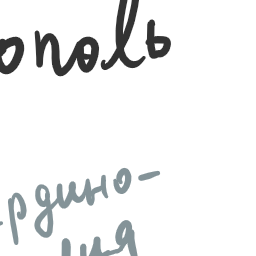 ополь
рдино-
ия